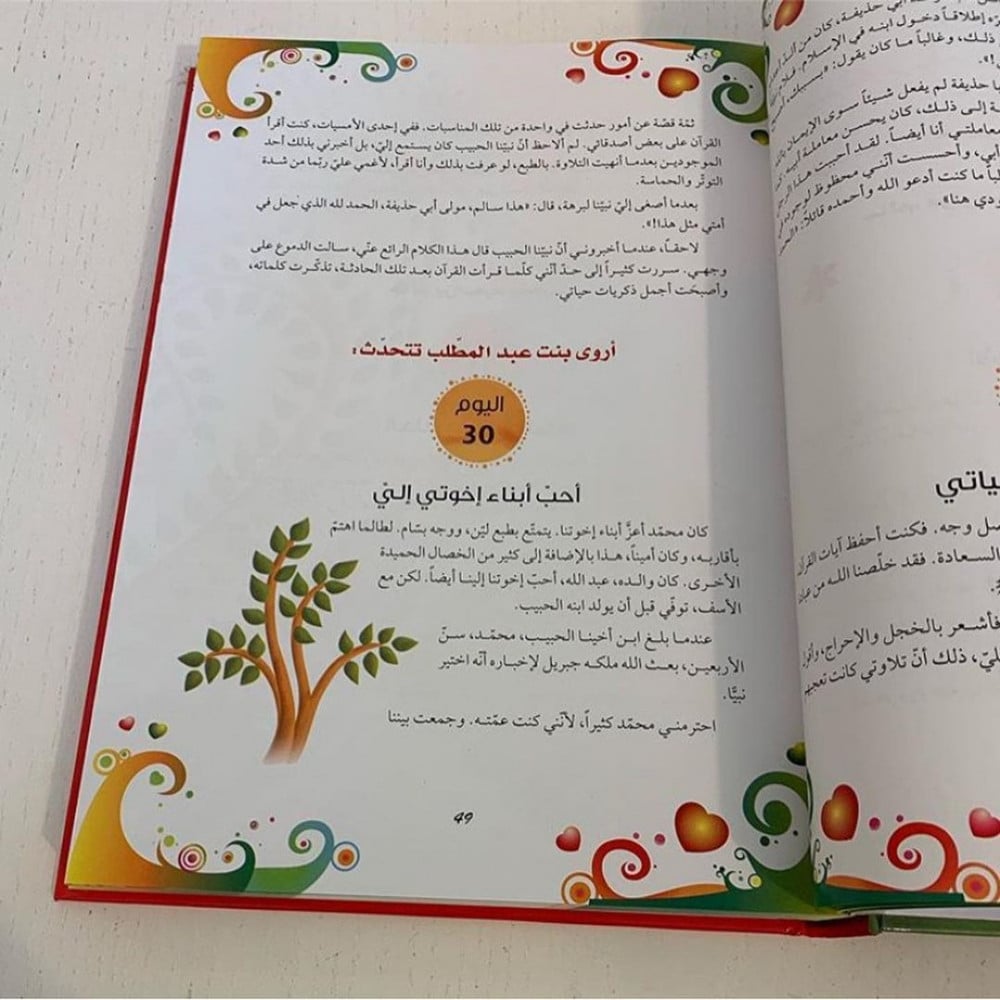 ثمّة قصّة عن أمور حدثت في واحدة من تلك المناسبات. ففي إحدى الأمسيات، كنت أقرأ
القرآن على بعض أصدقائي. لم ألاحظ أنّ نبيّنا الحبيب كان يستمع إليّ، بل أخبرني بذلك أحد
الموجودين بعدما أنهيت التلاوة. بالطبع، لو عرفت بذلك وأنا أقرأ، لأغمي عليّ ربّما من شدة
التوتّر والحماسة.
بعدما أصغى إليّ نبيّنا لبرهة، قال: «هذا سالم، مولى أبي حذيفة، الحمد لله الذي جعل في
أمتي مثل هذا!».
لاحقاً، عندما أخبروني أنّ نبيّنا الحبيب قال هذا الكلام الرائع عنّي، سالت الدموع على
وجهي. سررت كثيراً إلى حدّ أنّني كلّما قرأت القرآن بعد تلك الحادثة، تذكّرت كلماته،
وأصبحَت أجمل ذكريات حياتي.
أروى بنت عبد المطّلب تتحدّث:
اليوم
30
أحبّ أبناء إخوتي إليّ
كان محمّد أعزَّ أبناء إخوتنا. يتمتّع بطبع ليّن، ووجه بسّام. لطالما اهتمّ
بأقاربه، وكان أميناً، هذا بالإضافة إلى كثير من الخصال الحميدة
الأخرى. كان والده، عبد الله، أحبّ إخوتنا إلينا أيضاً. لكن مع
الأسف، توفّي قبل أن يولد ابنه الحبيب.
عندما بلغ ابن أخينا الحبيب، محمّد، سنّ
الأربعين، بعث الله ملكه جبريل لإخباره أنّه اختير
نبيًّا.
احترمني محمّد كثيراً، لأنّني كنت عمّته. وجمعت بيننا
49
أبي حذيفة، كان من
إطلاقاً دخول ابنه في الإسلام.
ذلك، وغالباً ما كان يقول: «بسببك،
حذيفة لم يفعل شيئاً سوى الإيمان
إلى ذلك، كان يحسن معاملة
معاملتي أنا أيضاً. لقد أحببت هذا الرجل
أبي، وأحسست أنّني محظوظ لوجوده في
ما كنت أدعو الله وأحمده قائلاً:
هنا».
وجه. فكنت أحفظ آيات القرآن
السعادة. فقد خلّصنا الله من
فأشعر بالخجل والإحراج،
ذلك أنّ تلاوتي كانت تعجبهم